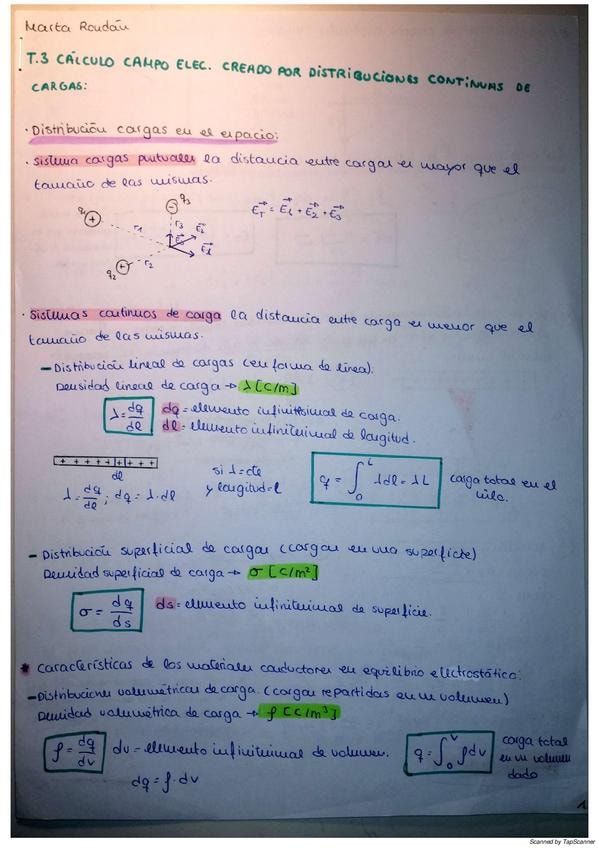 Marta Roudán
T.3 CÁLCULO CAMPO ELEC. CREADO POR DISTRIBUCIONES CONTINUAS DE
CARGAS:
· Distribución cargas en el espacio:
· Sistema cargas puntuales la distancia entre cargas es mayor que el
tamaño de las mismas.
q1 (+) q3 (-) q2 (+) r1 r2 r3 E1 E2 E3
ET = E1 + E2 + E3
· Sistemas continuos de carga la distancia entre carga es menor que el
tamaño de las mismas.
- Distribución lineal de cargas (en forma de línea).
Densidad lineal de carga → λ [C/m]
λ = dq/dl dq = elemento infinitesimal de carga.
dl = elemento infinitesimal de longitud.
+ + + + + + + + +
dl
λ = dq/dl ; dq = λ·dl
si λ = cte
y longitud = l
q = ∫₀ᴸ λdl = λL carga total en el
hilo.
- Distribución superficial de cargas (cargas en una superficie)
Densidad superficial de carga → σ [C/m²]
σ = dq/ds ds = elemento infinitesimal de superficie.
* Características de los materiales conductores en equilibrio electrostático:
- Distribuciones volumétricas de carga. (cargas repartidas en un volumen)
Densidad volumétrica de carga → ρ [C/m³]
ρ = dq/dv dv = elemento infinitesimal de volumen.
dq = ρ·dv
q = ∫₀ⱽ ρdv carga total
en un volumen
dado
1
Scanned by TapScanner